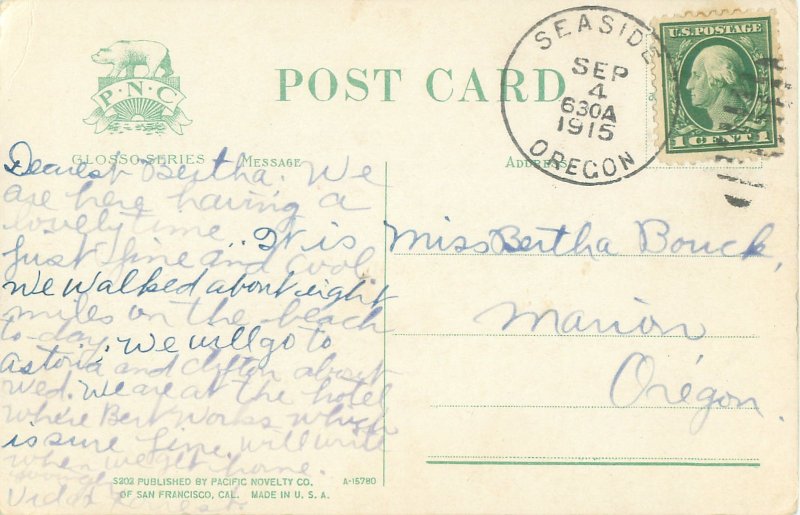 P·N·C
GLOSSO SERIES
POST CARD
SEASIDE
SEP
4
630A
1915
OREGON
U.S. POSTAGE
1 CENT 1
MESSAGE
ADDRESS
Dearest Bertha. We
are here having a
lovely time. It is
just fine and cool
We walked about eight
miles on the beach
to-day. We will go to
Astoria and Clifton about
Wed. We are at the hotel
where Bert works which
is sure fine. Will write
when we get home.
Miss Bertha Bouck,
Marion
Oregon.
S202 PUBLISHED BY PACIFIC NOVELTY CO.
OF SAN FRANCISCO, CAL. MADE IN U. S. A.
A-15780